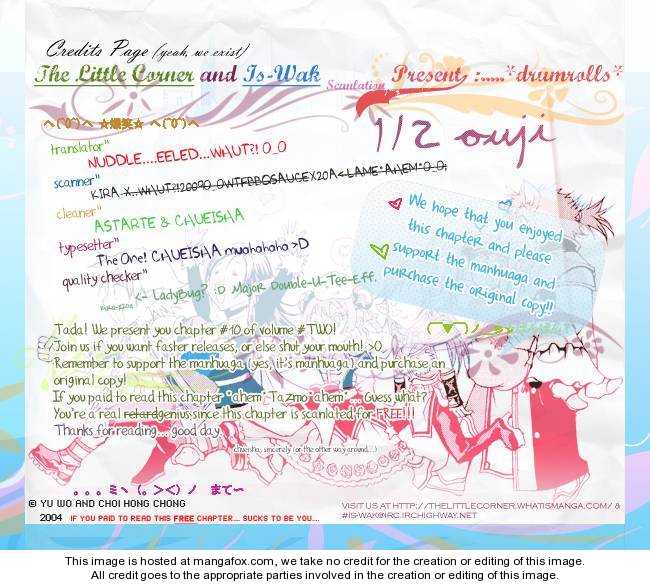 Credits Page (yeah, we exist)
The Little Corner and Is-Wak Scanlation Present, :.....*drumrolls*
1/2 ouji
へ(^0^)へ ☆爆笑☆ へ(^0^)へ
translator"
NUDDLE....EELED...WHUT?! O_O
scanner"
KIRA
cleaner"
ASTARTE & CHUEISHA
typesetter"
The One! CHUEISHA muahahaha >D
quality checker"
<- LadyBug? :D Major Double-U-Tee-Eff.
We hope that you enjoyed
this chapter and please
support the manhuaga and
purchase the original copy!!
Tada! We present you chapter #10 of volume #TWO!
Join us if you want faster releases, or else shut your mouth! >O
Remember to support the manhuaga (yes, it's manhuaga) and purchase an
original copy!
If you paid to read this chapter *ahem* Tazmo *ahem*... Guess what?
You're a real retardgenius since this chapter is scanlated for FREE!!!
Thanks for reading.... good day.
chueisha, sincerely (or the other way around...)
。。。ミヽ(。><)ノ まて~
© YU WO AND CHOI HONG CHONG
2004 IF YOU PAID TO READ THIS FREE CHAPTER... SUCKS TO BE YOU...
VISIT US AT HTTP://THELITTLECORNER.WHATISMANGA.COM/ &
#IS-WAK@IRC.IRCHIGHWAY.NET
This image is hosted at mangafox.com, we take no credit for the creation or editing of this image.
All credit goes to the appropriate parties involved in the creation or editing of this image.